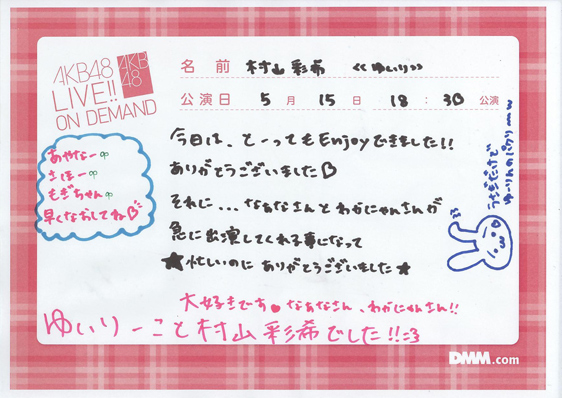 AKB48
LIVE!!
ON DEMAND
AKB
48
名前 村山彩希 《ゆいり》
公演日 5月15日 18:30公演
今日は、とーってもEnjoyできました!!
ありがとうございました♡
それに...なぁなさんとわかにゃんさんが
急に出演してくれる事になって
★忙しいのにありがとうございました★
大好きです♥なぁなさん、わかにゃんさん!!
ゆいりーこと村山彩希でした!!=3
あやなー
さほー
もぎちゃん
早くなおしてね♡
うさぎだけで
ゆーりんのパクリーww
DMM.com